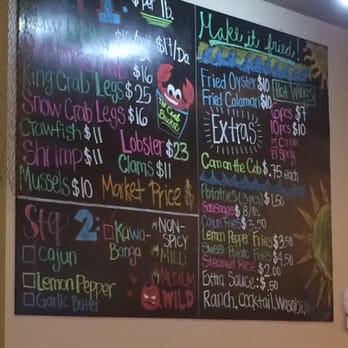 1:
per lb.
$17/Da
Crab Legs $16
King Crab Legs $25
Snow Crab Legs $16
Crawfish $11
Lobster $23
Shrimp $11
Clams $11
Mussels $10
Market Price $
The Crab Bucket
Step 2:
Cajun
Lemon Pepper
Garlic Butter
Kawa-Banga
NON-SPICY
MILD
MEDIUM
WILD
Make it fried!
Fried Oyster $10
Fried Calamari $10
Hot Wings
6pcs $7
10pcs $10
Cajun
Spicy
Extras
Corn on the Cob $.75 each
Potatoes (3pcs) $1.50
Sausages $8/lb.
Cajun Fries $3.50
Lemon Pepper Fries $3.50
Sweet Potato Fries $4.50
Steamed Rice $2.00
Extra Sauce: $.50
Ranch, Cocktail, Wasabi,